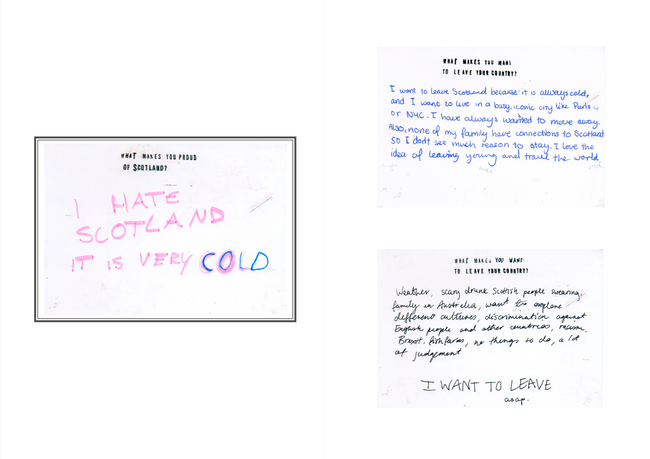 WHAT MAKES YOU PROUD
OF SCOTLAND?
I HATE
SCOTLAND
IT IS VERY COLD
WHAT MAKES YOU WANT
TO LEAVE YOUR COUNTRY?
I want to leave Scotland because it is always cold,
and I want to live in a busy, iconic city like Paris
or NYC. I have always wanted to move away.
Also, none of my family have connections to Scotland
so I don't see much reason to stay. I love the
idea of leaving young and travel the world
WHAT MAKES YOU WANT
TO LEAVE YOUR COUNTRY?
Weather, scary drunk Scottish people swearing,
family in Australia, want to explore
different cultures, discrimination against
English people and other countries, racism,
Brexit, no things to do, a lot
of judgement
I WANT TO LEAVE
asap.